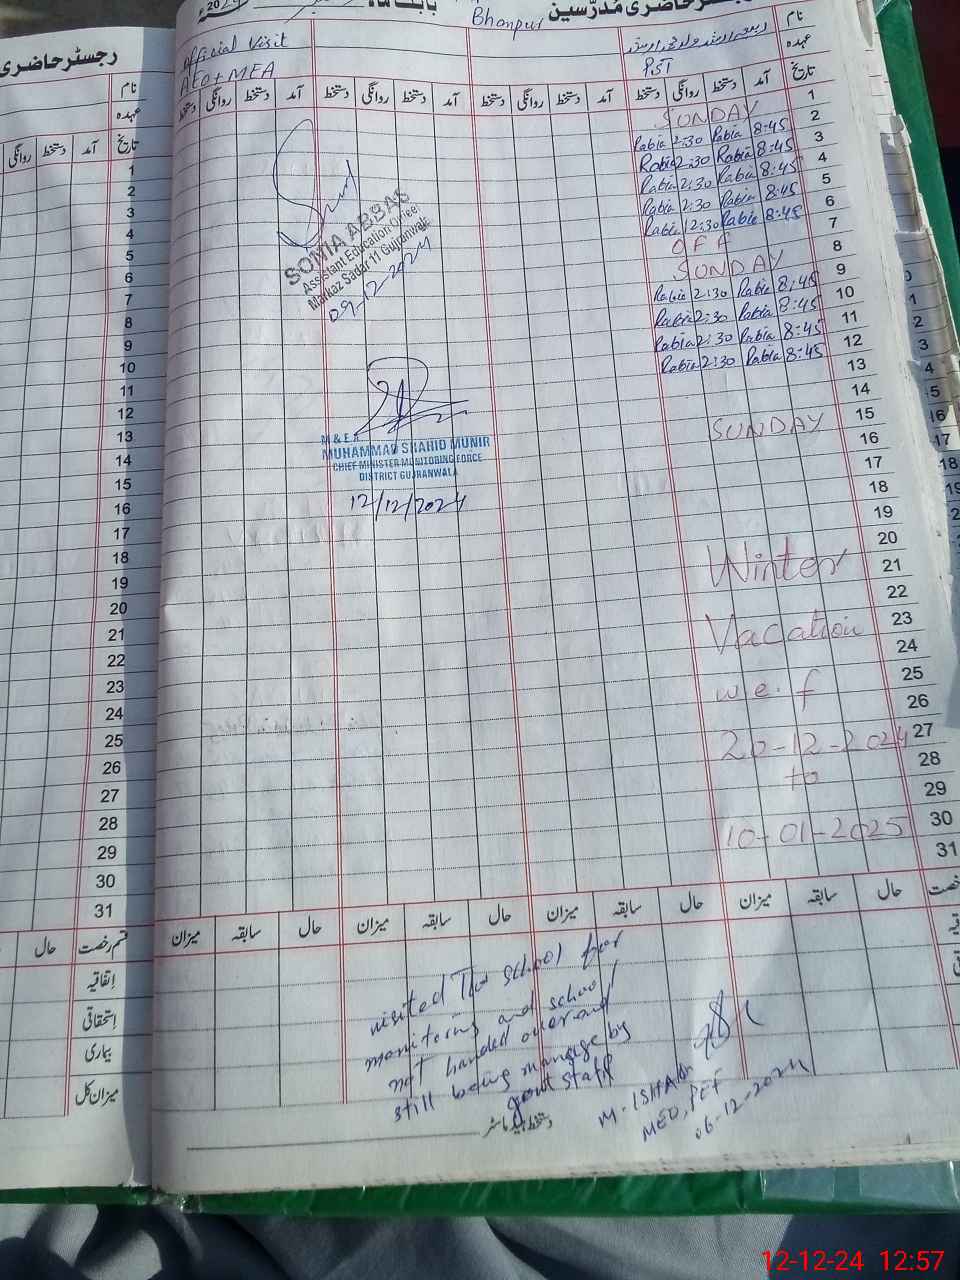 رجسٹر حاضری مُدرّسین
بابت ماہ
Bhanpur
2024
رجسٹر حاضری
نام
Official Visit
AEO + MEA
عہدہ
PST
تاریخ آمد دستخط روانگی دستخط آمد دستخط روانگی دستخط آمد دستخط روانگی دستخط
1 SUNDAY
2 8:45 Rabia 2:30 Rabia
3 8:45 Rabia 2:30 Rabia
4 8:45 Rabia 2:30 Rabia
5 8:45 Rabia 2:30 Rabia
6 8:45 Rabia 2:30 Rabia
7 OFF
8 SUNDAY
9 8:45 Rabia 2:30 Rabia
10 8:45 Rabia 2:30 Rabia
11 8:45 Rabia 2:30 Rabia
12 8:45 Rabia 2:30 Rabia
13
14
15 SUNDAY
16
17
18
19
20
21 Winter
22
23 Vacation
24
25
26 w.e.f
27 20-12-2024
28 to
29
30 10-01-2025
31
SONIA ABBAS
Assistant Education Officer
Markaz Sadar 11 Gujranwala
09-12-2024
M & E A
MUHAMMAD SHAHID MUNIR
CHIEF MINISTER MONITORING FORCE
DISTRICT GUJRANWALA
12/12/2024
حال سابقہ میزان حال سابقہ میزان حال سابقہ میزان
visited The school for
monitoring and school
not handed over and
still being manage by
govt staff
M. ISHAQ
MEO, PEF
06-12-2024
دستخط ہیڈ ماسٹر
نام
عہدہ
تاریخ آمد دستخط روانگی
1
2
3
4
5
6
7
8
9
10
11
12
13
14
15
16
17
18
19
20
21
22
23
24
25
26
27
28
29
30
31
قسم رخصت حال
اتفاقیہ
استحقاقی
بیماری
میزان کل
12-12-24 12:57